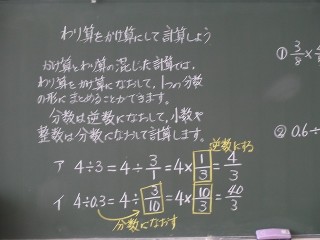 わり算をかけ算にして計算しよう
かけ算とわり算の混じった計算では、
わり算をかけ算になおして、1つの分数
の形にまとめることができます。
分数は逆数になおして、小数や
整数は分数になおして計算します。
逆数にする
ア 4÷3=4÷3/1=4×1/3=4/3
イ 4÷0.3=4÷3/10=4×10/3=40/3
分数になおす
① 3/8×
② 0.6÷